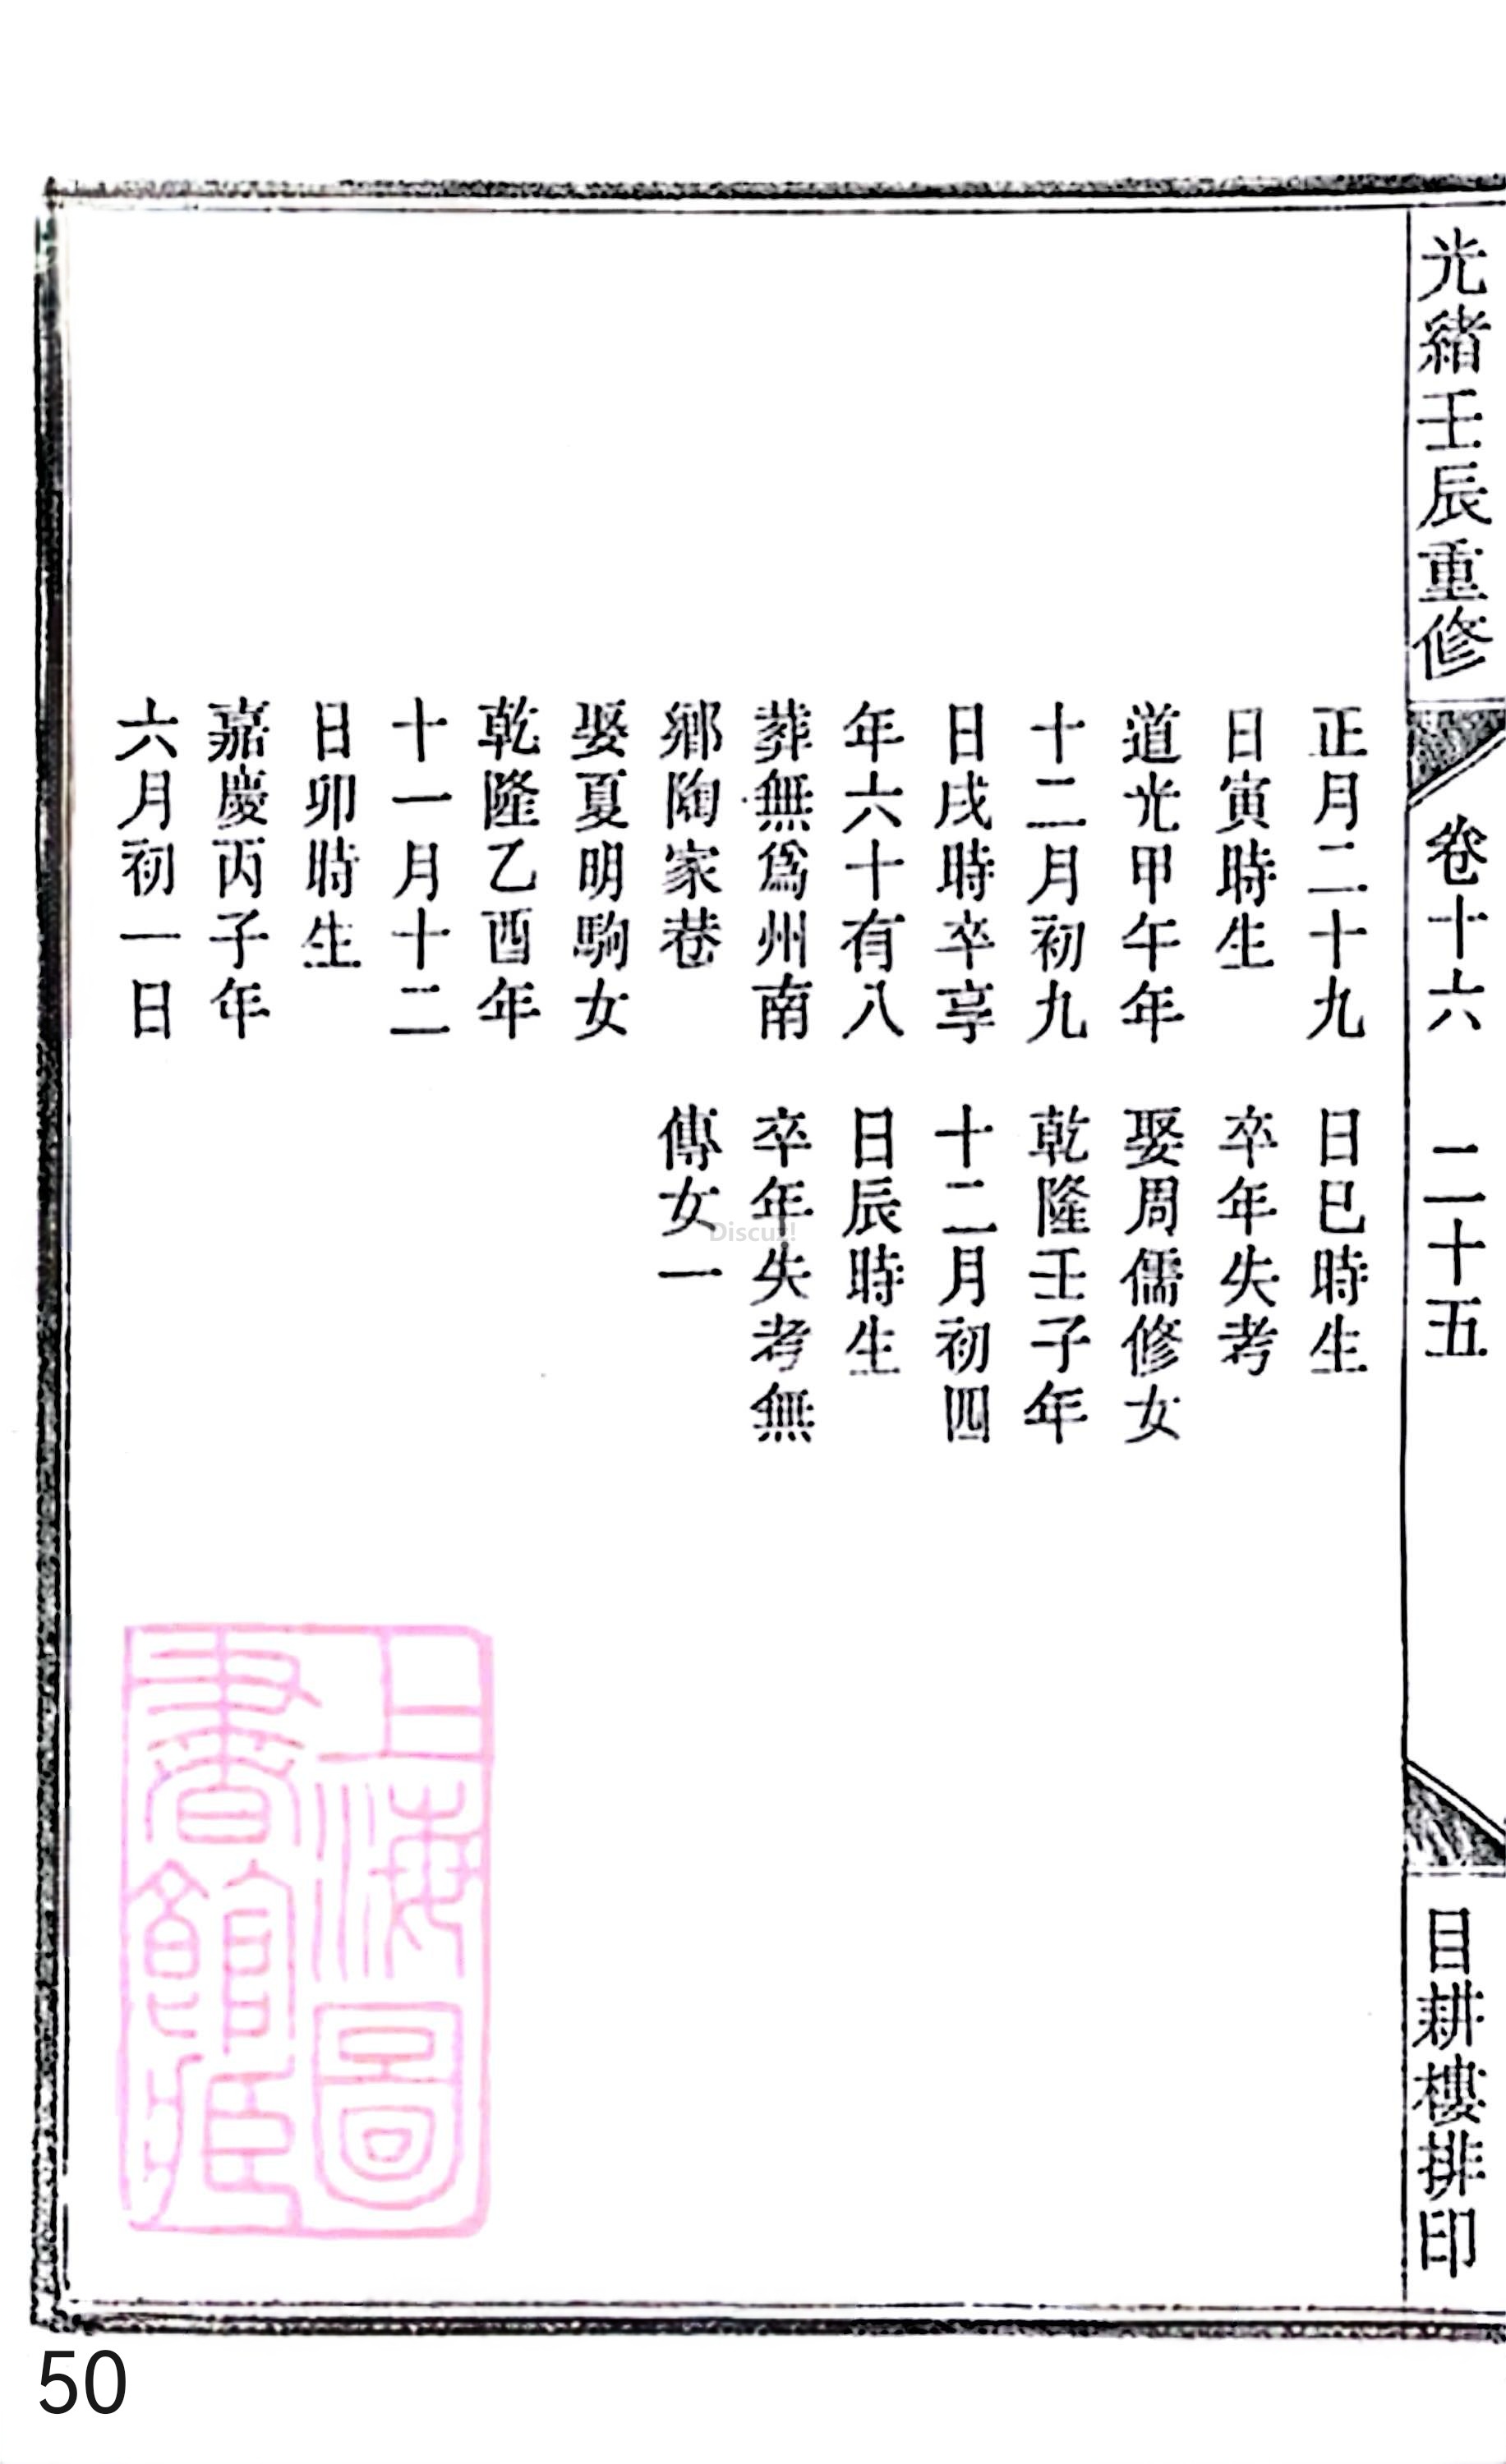 光緒壬辰重修
卷十六
二十五
目耕樓排印
正月二十九
日寅時生
道光甲午年
十二月初九
日戌時卒享
年六十有八
葬無爲州南
鄉陶家巷
娶夏明駒女
乾隆乙酉年
十一月十二
日卯時生
嘉慶丙子年
六月初一日
日巳時生
卒年失考
娶周儒修女
乾隆壬子年
十二月初四
日辰時生
卒年失考無
傳女一
上海圖
書館藏
Discuz!
50